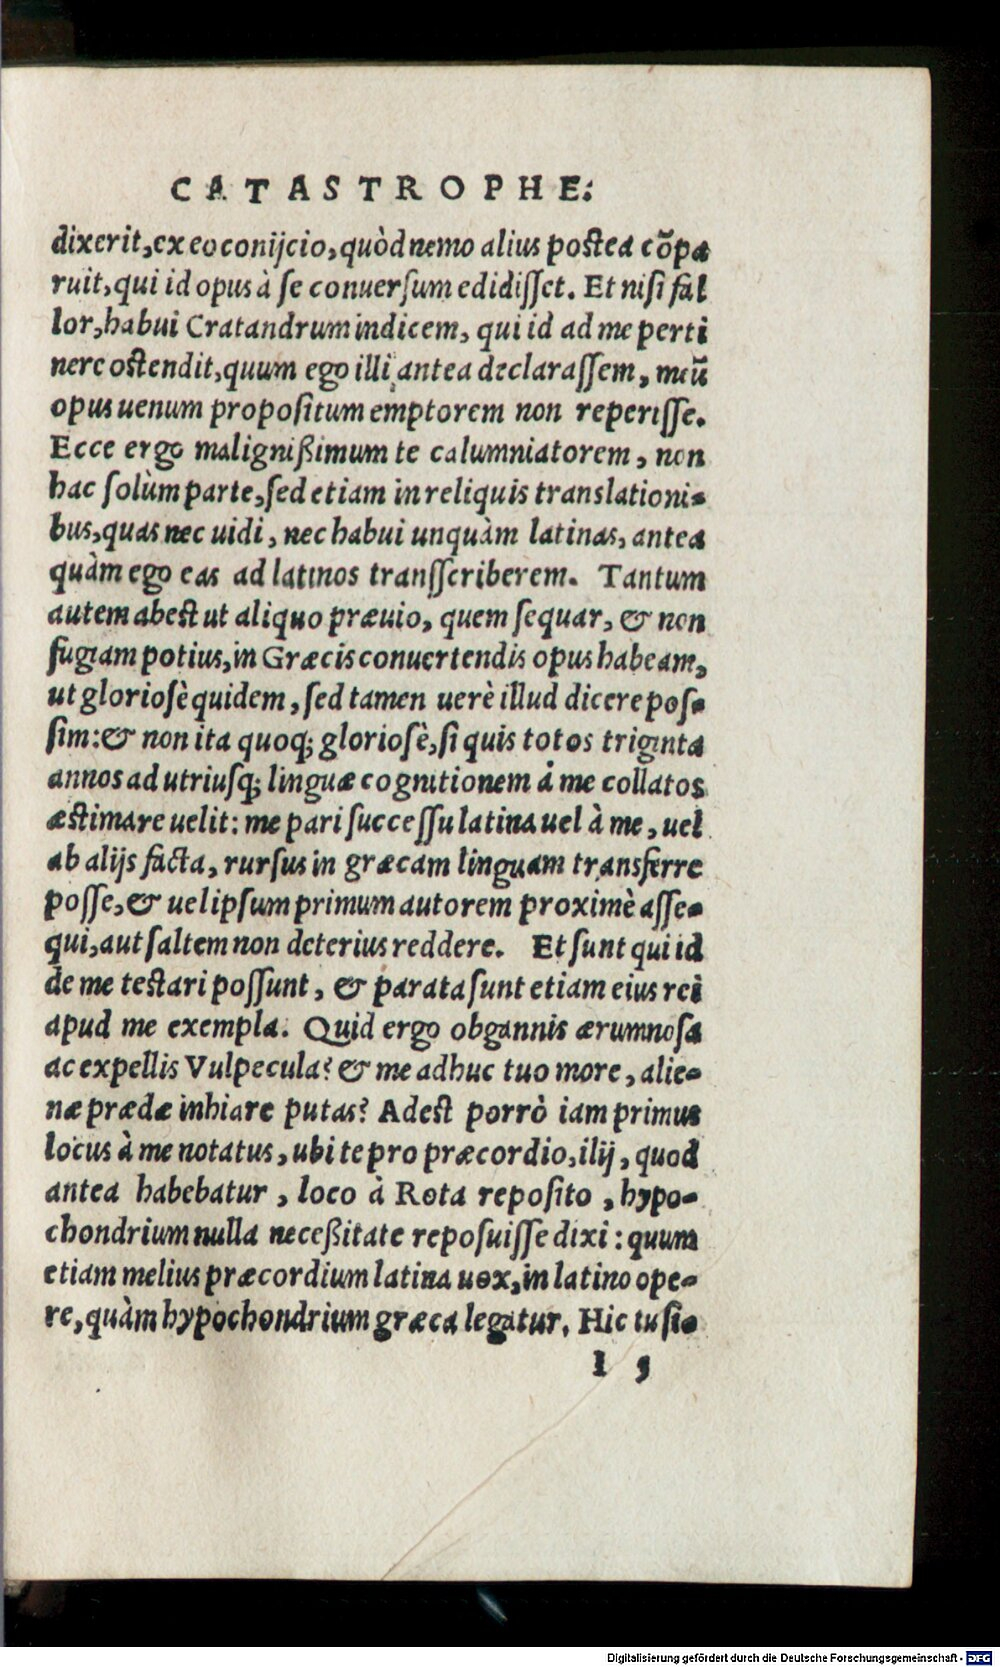 CATASTROPHE.
dixerit, ex eo conijcio, quòd nemo alius postea cõpa
ruit, qui id opus à se conuersum edidisset. Et nisi fal
lor, habui Cratandrum indicem, qui id ad me perti
nere ostendit, quum ego illi antea declarassem, meũ
opus uenum propositum emptorem non reperisse.
Ecce ergo malignißimum te calumniatorem, non
hac solùm parte, sed etiam in reliquis translationi-
bus, quas nec uidi, nec habui unquàm latinas, antea
quàm ego eas ad latinos transscriberem. Tantum
autem abest ut aliquo præuio, quem sequar, & non
fugiam potius, in Græcis conuertendis opus habeam,
ut gloriosè quidem, sed tamen uerè illud dicere pos-
sim: & non ita quoq; gloriosè, si quis totos triginta
annos ad utriusq; linguæ cognitionem à me collatos
æstimare uelit: me pari successu latina uel à me, uel
ab alijs facta, rursus in græcam linguam transferre
posse, & uel ipsum primum autorem proximè asse-
qui, aut saltem non deterius reddere. Et sunt qui id
de me testari possunt, & parata sunt etiam eius rei
apud me exempla. Quid ergo obgannis ærumnosa
ac expellis Vulpecula? & me adhuc tuo more, alie-
næ prædæ inhiare putas? Adest porrò iam primus
locus à me notatus, ubi te pro præcordio, ilij, quod
antea habebatur, loco à Rota reposito, hypo-
chondrium nulla neceßitate reposuisse dixi: quum
etiam melius præcordium latina uox, in latino ope-
re, quàm hypochondrium græca legatur. Hic tu si-
l 5
Digitalisierung gefördert durch die Deutsche Forschungsgemeinschaft - DFG